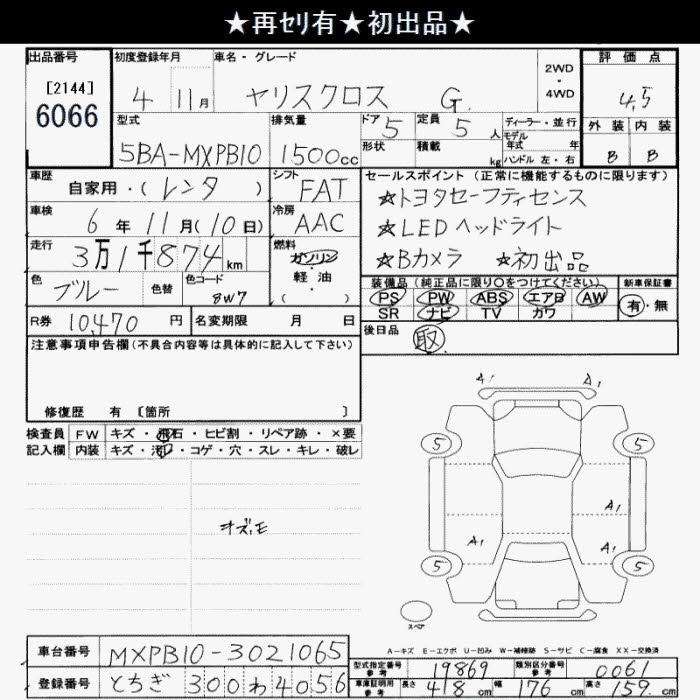 ★再ｾﾘ有★初出品★
出品番号 初度登録年月 車名・グレード 2WD・4WD 評価点
[2144]
6066
4 11月 ヤリスクロス G. 4.5
型式 排気量 ドア 5 定員 5人 ディーラー・並行 外装 内装
モデル年式 年
5BA-MXPB10 1500cc 形状 積載 kg ハンドル 左・右 B B
車歴 自家用・(レンタ ) シフト FAT
セールスポイント (正常に機能するものに限ります)
☆トヨタセーフティセンス
車検 6年11月(10日) 冷房 AAC
☆LEDヘッドライト
走行 3万1千874km 燃料 ガソリン・軽油・( )
☆Bカメラ ☆初出品
色 ブルー 色替 色コード 8W7
装備品 (純正品に限り○をつけてください) 新車保証書
PS PW ABS エアB AW 有・無
SR ナビ TV カワ
R券 10,470円 名変期限 月 日
後日品 取
注意事項申告欄(不具合内容等は具体的に記入して下さい)
修復歴 有 〔箇所 〕
検査員 FW キズ・飛石・ヒビ割・リペア跡・×要
記入欄 内装 キズ・汚れ・コゲ・穴・スレ・キレ・破レ
A1 A1
5 5
A1
A1 A1
5 5
スペア
A-キズ E-エクボ U-凹み W-補修跡 S-サビ C-腐食 XX-交換済
車台番号 MXPB10-3021065
登録番号 とちぎ 300 わ 4056
型式指定番号 参考 19869 類別区分番号 参考 0061
車庫証明用 参考 長さ 418cm 幅 176cm 高さ 159cm